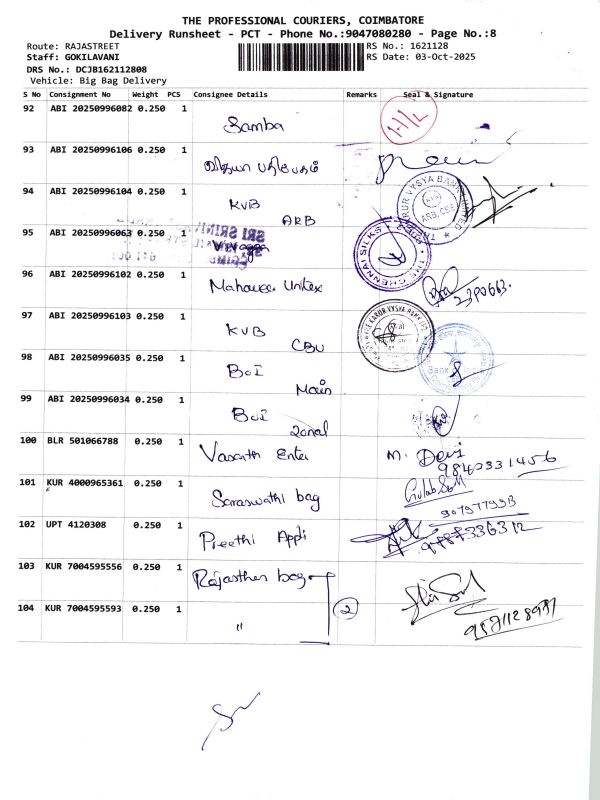 THE PROFESSIONAL COURIERS, COIMBATORE
Delivery Runsheet - PCT - Phone No.:9047080280 - Page No.:8
Route: RAJASTREET
RS No.: 1621128
Staff: GOKILAVANI
RS Date: 03-Oct-2025
DRS No.: DCJB162112808
Vehicle: Big Bag Delivery
S No Consignment No Weight PCS Consignee Details Remarks Seal & Signature
92 ABI 20250996082 0.250 1
Samba
93 ABI 20250996106 0.250 1
வித்யா பதிப்பகம்
94 ABI 20250996104 0.250 1
KVB
ARB
KARUR VYSYA BANK
ARB. CBE
95 ABI 20250996063 0.250 1
SRI SRINI
THE CHENNAI SILKS
96 ABI 20250996102 0.250 1
Mahaveer Unitex
97 ABI 20250996103 0.250 1
KVB
CBU
THE KARUR VYSYA BANK
98 ABI 20250996035 0.250 1
BOI
Main
Bank
99 ABI 20250996034 0.250 1
BOI
Zonal
100 BLR 501066788 0.250 1
Vasanth Enter
M. Devi
9842331456
101 KUR 4000965361 0.250 1
Saraswathi bag
102 UPT 4120308 0.250 1
Preethi Appli
9787336312
103 KUR 7004595556 0.250 1
Rajasthan bag
104 KUR 7004595593 0.250 1
"
2